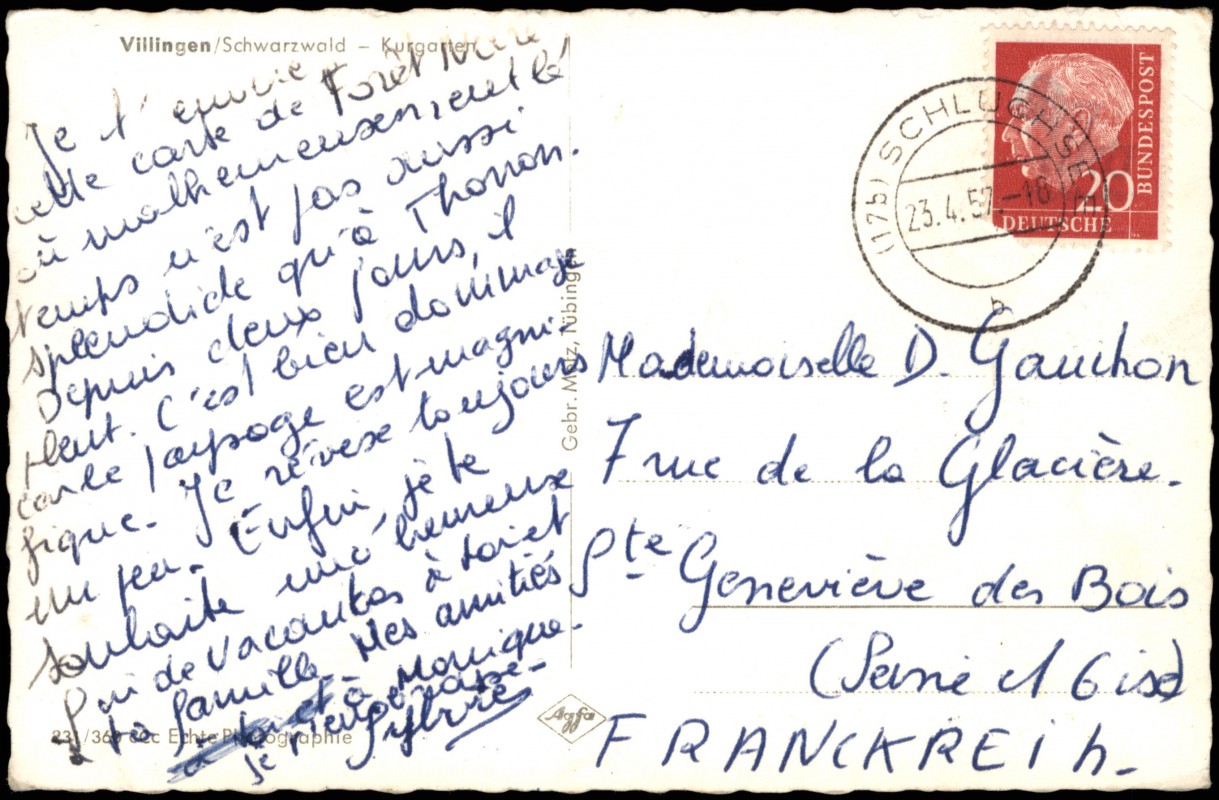 Villingen/Schwarzwald – Kurgarten
Je t'envoie
cette carte de Forêt Noire
où malheureusement le
temps n'est pas aussi
splendide qu'à Thonon.
Depuis deux jours, il
pleut. C'est bien dommage
car le paysage est magni-
fique. Je révise toujours
un peu. Enfin, je te
souhaite une heureuse
fin de vacances à toi et
ta famille. Mes amitiés
à Monique.
Je
Sylvie
231/360 Echte Photographie
Gebr. Metz, Tübingen
Agfa
(17b) SCHLUCHSEE
23.4.57.-18
b
20
DEUTSCHE
BUNDESPOST
Mademoiselle D. Gauchon
7 rue de la Glacière.
Ste Geneviève des Bois
(Seine et Oise)
FRANCKREIch.